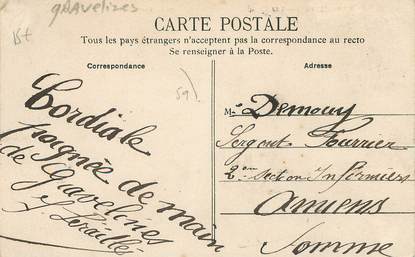 gravelines
CARTE POSTALE
Tous les pays étrangers n'acceptent pas la correspondance au recto
Se renseigner à la Poste.
Correspondance
Cordiale
poignée de main
de Gravelines
Adresse
59
M. Demouy
Sergent Fourrier
2eme section Infirmiers
Amiens
Somme